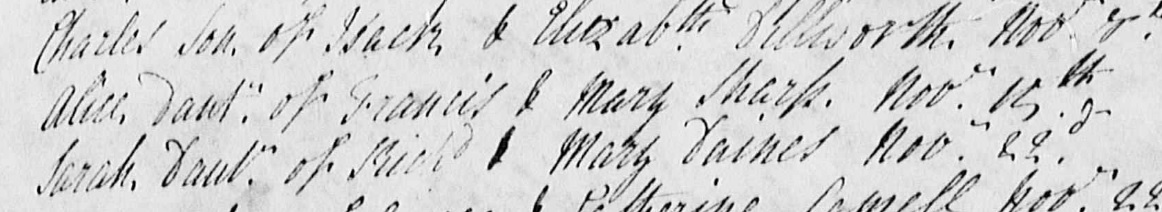 Charles Son. of Isack & Elizabth. Dillworth. Novr. 8th.
Alice Dautr. of Francis & Mary Sharp. Novr. 15th.
Sarah Dautr. of Richd & Mary Daines Novr. 22d.
& Catherine Novr. 22